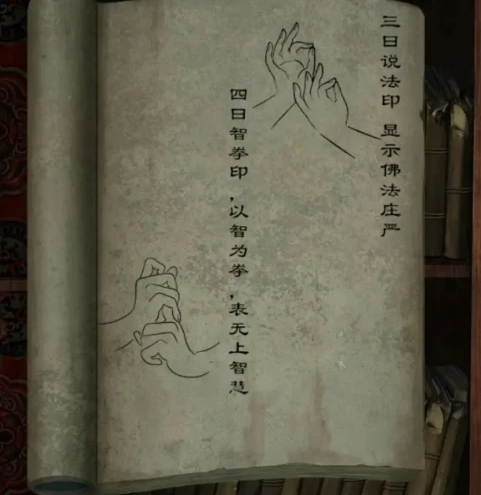 三曰说法印 显示佛法庄严
四曰智拳印，以智为拳，表无上智慧